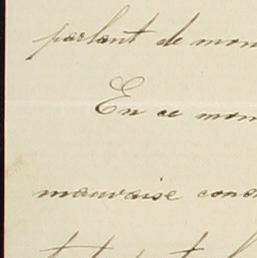 parlant de mon
En ce mom
mauvaise cons